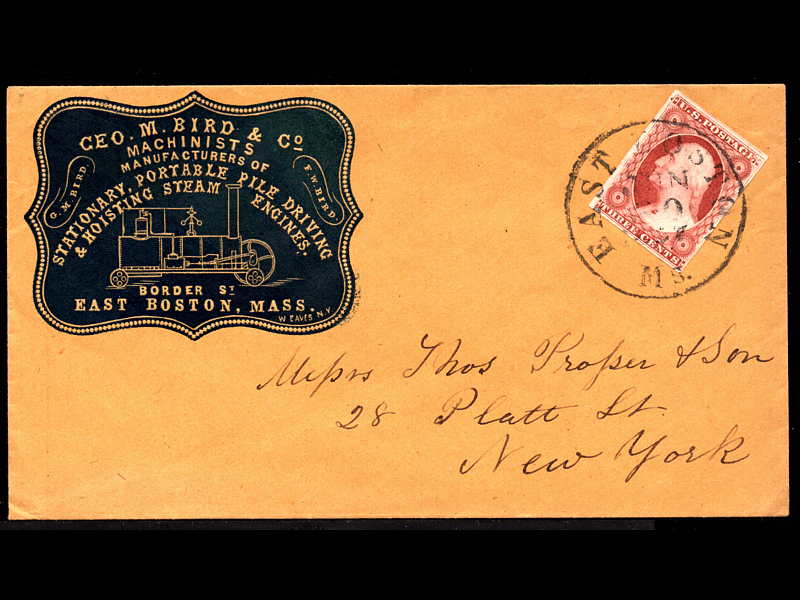 GEO. M. BIRD & Co
MACHINISTS
MANUFACTURERS OF
STATIONARY, PORTABLE PILE DRIVING
& HOISTING STEAM ENGINES.
G. M. BIRD.
F. W. BIRD
BORDER ST
EAST BOSTON, MASS.
W EAVES N.Y
U.S. POSTAGE
THREE CENTS
EAST BOSTON
Ms.
Messrs Thos Prosser & Son
28 Platt St.
New York